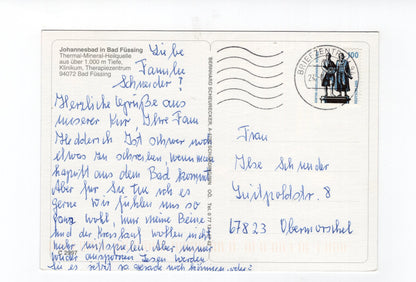 Johannesbad in Bad Füssing
Thermal-Mineral-Heilquelle
aus über 1.000 m Tiefe,
Klinikum, Therapiezentrum
94072 Bad Füssing
Liebe
Familie
Schneider!
Herzliche Grüße aus
unserer Kur, Ihre Fam
Ist schwer noch
etwas zu schreiben, wenn man
kaputt aus dem Bad kommt
Aber für Sie tue ich es
gerne Wir fühlen uns so
ganz wohl, nur meine Beine
und der Kreislauf wollen nicht
mehr mitspielen. Aber immer
wieder ausspannen
Sie es selbst so gerade noch können oder?
© 2997
BRIEFZENTRUM
100
Frau
Ilse Schneider
Luitpoldstr. 8
67823 Obermoschel